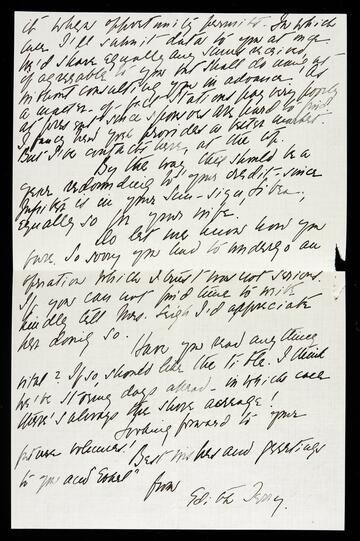 it when opportunity permits. In which
case I'll submit data to you at once.
We'd share equally any sums received,
if agreeable to you but shall do nothing
without consulting you in advance. As
a matter of fact stations pay very poorly
at present since sponsors are hard to find
New York provides a better market.
But I've contacts here, at the top.
By the way, this should be a
year redounding to your credit - since
Jupiter is in your Sun-sign, Libra,
Equally so for your wife.
Do let me know how you
fare. So sorry you had to undergo an
operation which I trust was not serious.
If you can not find time to write
kindly tell Mrs. Leigh I'd appreciate
her doing so.
Have you read anything
vital? If so, should like the title. I think
we're storing days ahead - in which case
there's always the shore acreage!
Looking forward to your
future volumes!
Best wishes and greetings
to you and
from
Edith